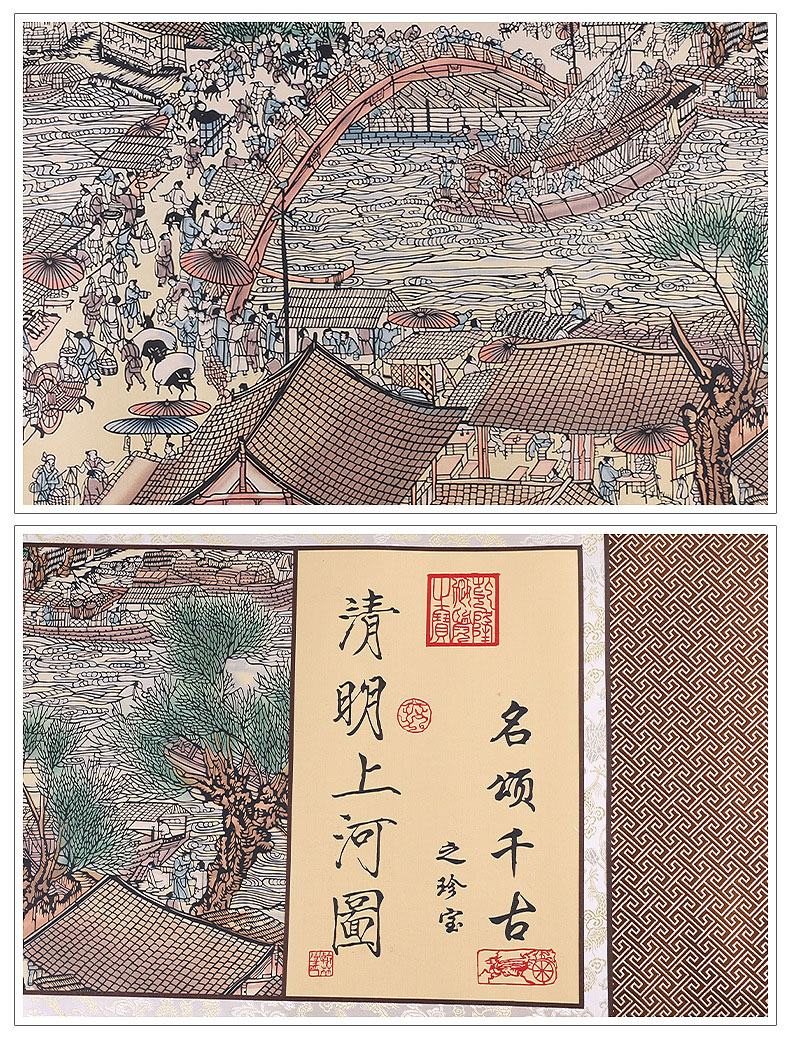 名颂千古
之珍宝
乾隆御覽之寶
清明上河圖